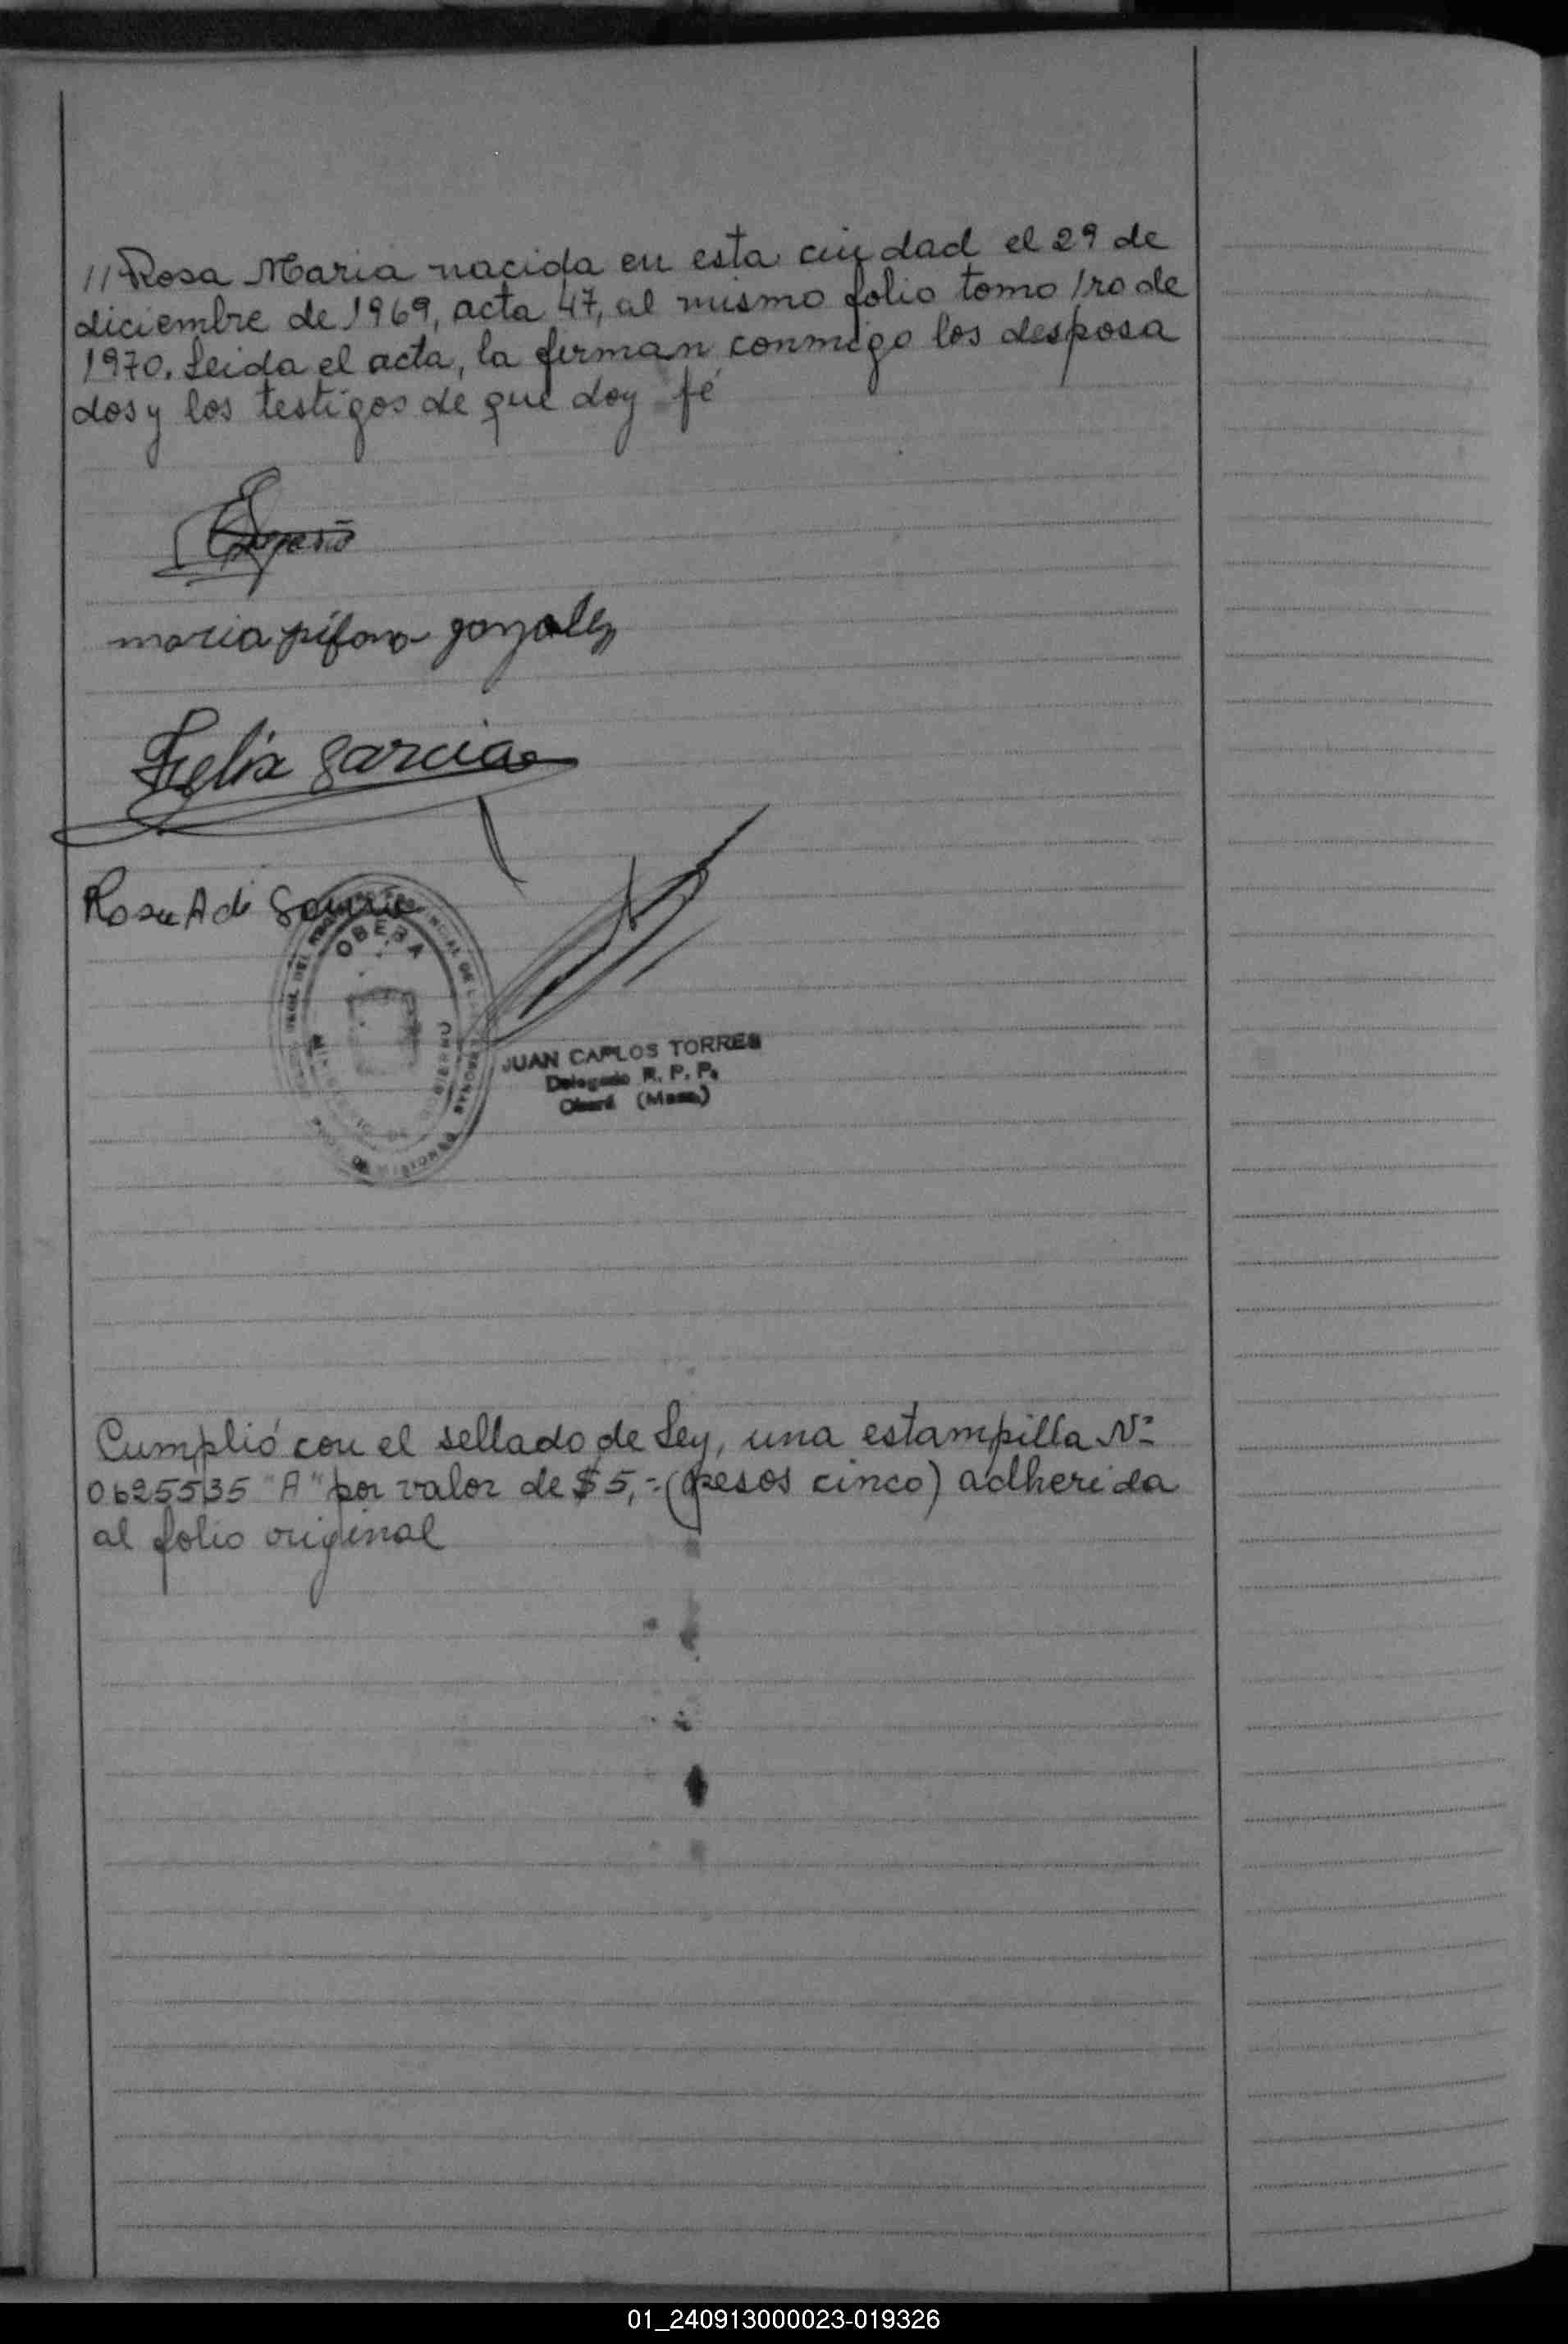 // Rosa Maria nacida en esta ciudad el 29 de
diciembre de 1969, acta 47, al mismo folio tomo 1ro de
1970. Leida el acta, la firman conmigo los desposa
dos y los testigos de que doy fé
maria pifania gonzalez
Felix Garcia
Rosa A de Garcia
OBERA
JUAN CARLOS TORRES
Delegado R. P. P.
Oberá (Mnes.)
Cumplió con el sellado de Ley, una estampilla Nº
0625535 "A" por valor de $5,= (pesos cinco) adherida
al folio original
01_240913000023-019326